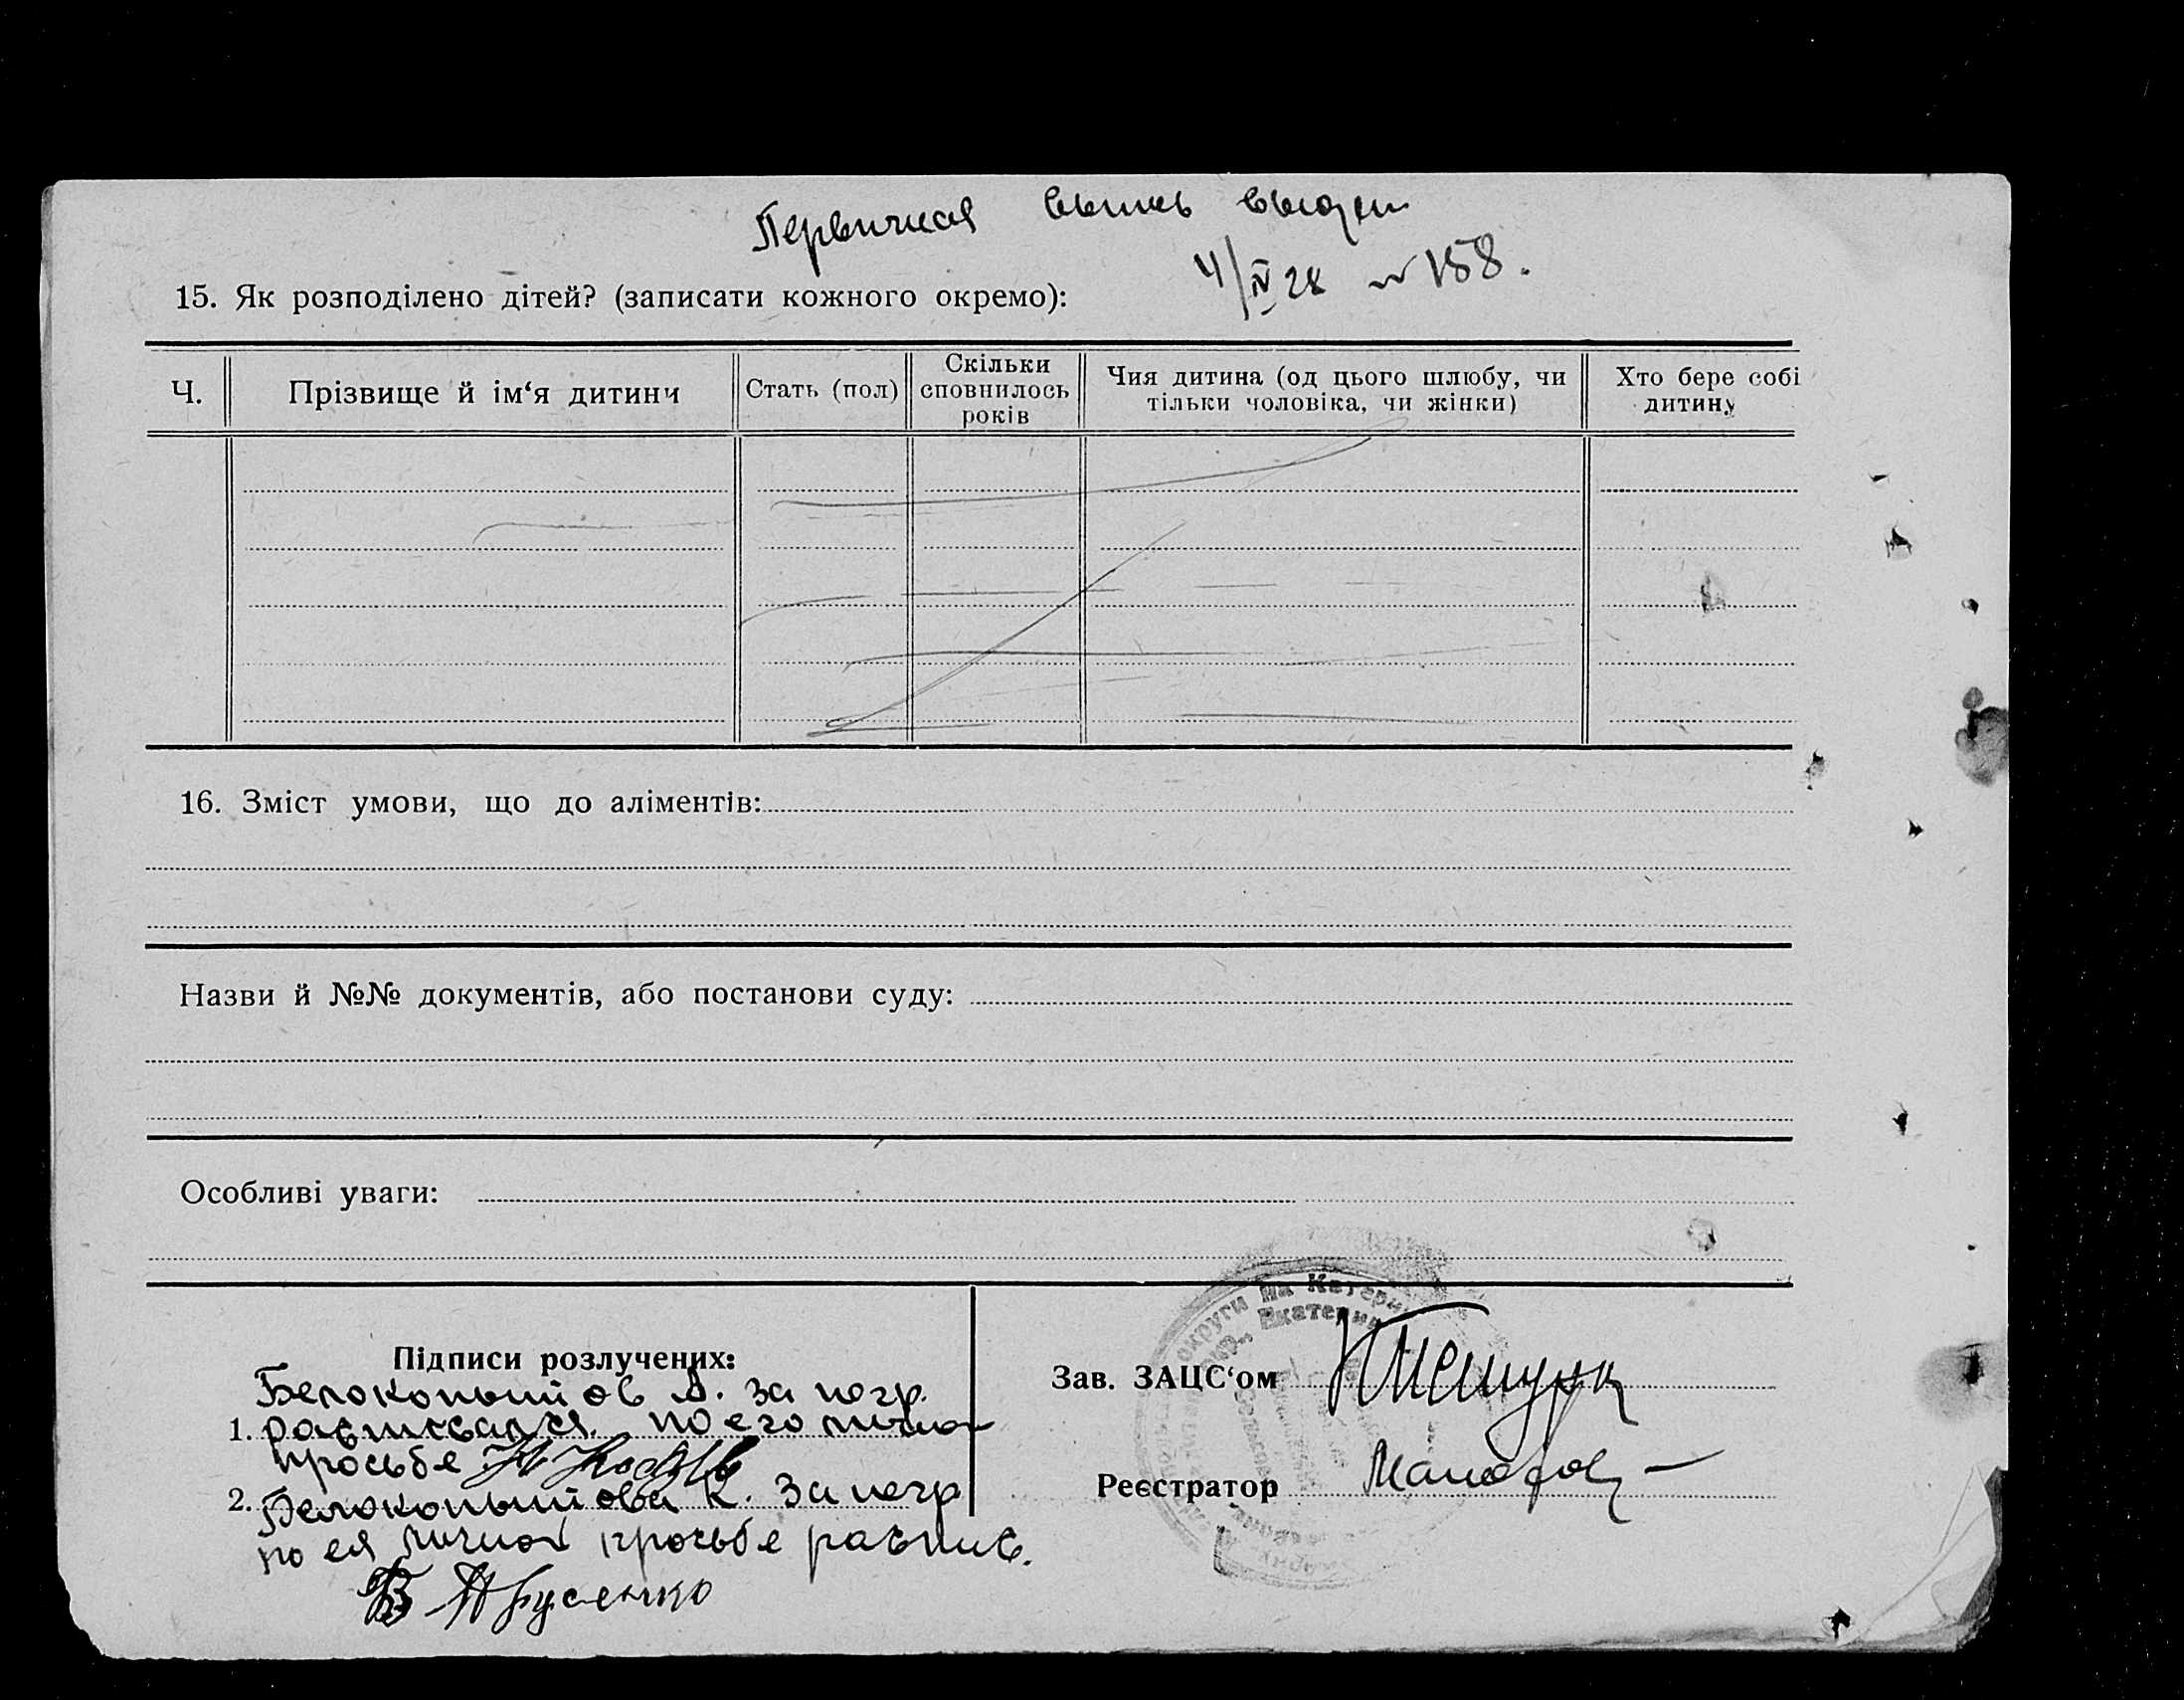 Первичная выпись выдан
4/IV 28 № 158.
15. Як розподілено дітей? (записати кожного окремо):
Ч.
Прізвище й ім‘я дитини
Стать (пол)
Скільки
сповнилось
років
Чия дитина (од цього шлюбу, чи
тільки чоловіка, чи жінки)
Хто бере собі
дитину
16. Зміст умови, що до аліментів:
Назви й №№ документів, або постанови суду:
Особливі уваги:
округи на Катери
Екатерин
Підписи розлучених:
Белокопытов А. за негр.
1. расписался по его личной
просьбе
2. Белокопытова К. за негр
по ея личной просьбе распис.
Зав. ЗАЦС‘ом
Реєстратор